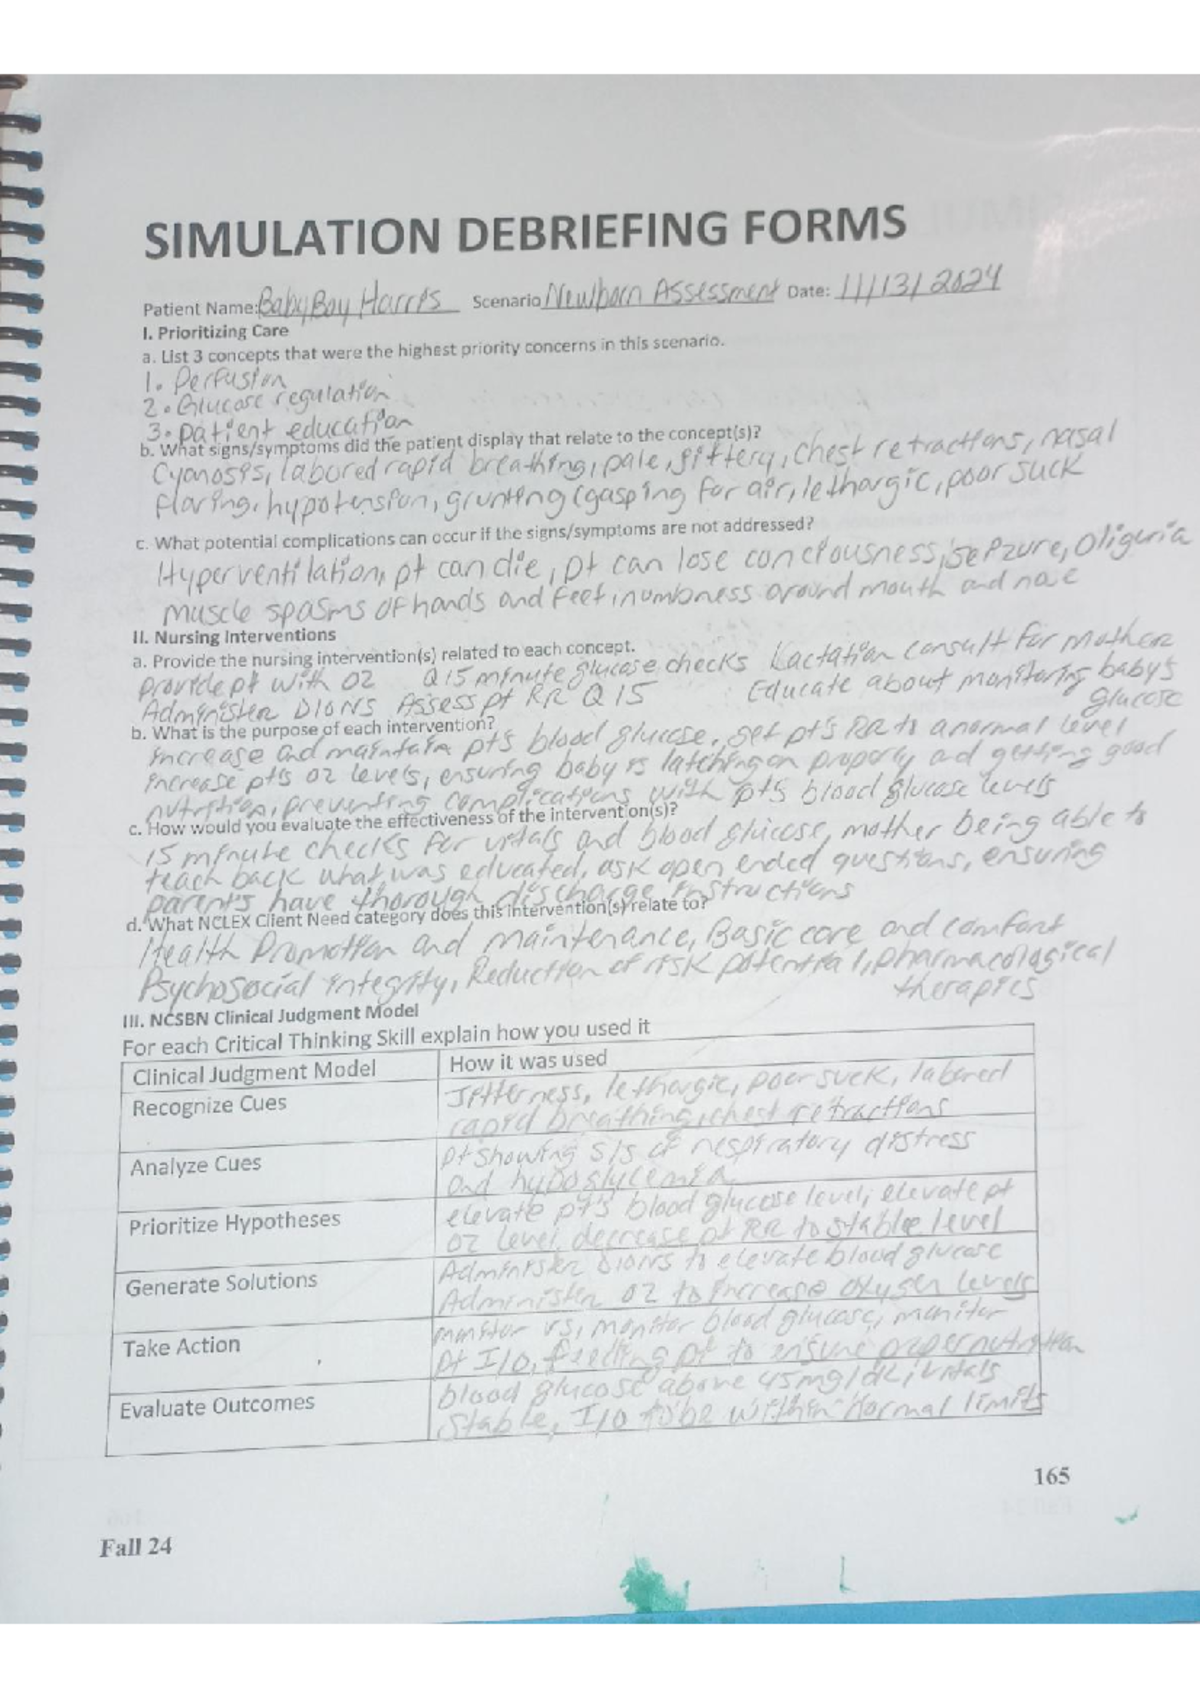 SIMULATION DEBRIEFING FORMS
Patient Name: Baby Boy Harris Scenario Newborn Assessment Date: 11/13/2024
I. Prioritizing Care
a. List 3 concepts that were the highest priority concerns in this scenario.
1. Perfusion
2. Glucose regulation
3. patient education
b. What signs/symptoms did the patient display that relate to the concept(s)?
Cyanosis, labored rapid breathing, pale, jittery, chest retractions, nasal
flaring, hypotension, grunting (gasping for air, lethargic, poor suck
c. What potential complications can occur if the signs/symptoms are not addressed?
Hyperventilation, pt can die, pt can lose conciousness, seizure, oliguria
muscle spasms of hands and feet, numbness around mouth and nose
II. Nursing Interventions
a. Provide the nursing intervention(s) related to each concept.
Provide pt with O2 Q15 minute glucose checks Lactation consult for mother
Administer D10NS Assess pt RR Q15 Educate about monitoring baby's
glucose
b. What is the purpose of each intervention?
increase and maintain pt's blood glucose, get pt's RR to a normal level
increase pts O2 levels, ensuring baby is latching on properly and getting good
nutrition, preventing complications with pts blood glucose levels
c. How would you evaluate the effectiveness of the intervention(s)?
15 minute checks for vitals and blood glucose, mother being able to
teach back what was educated, ask open ended questions, ensuring
parents have thorough discharge instructions
d. What NCLEX Client Need category does this intervention(s) relate to?
Health Promotion and maintenance, Basic care and comfort
Psychosocial integrity, Reduction of risk potential, pharmacological
therapies
III. NCSBN Clinical Judgment Model
For each Critical Thinking Skill explain how you used it
Clinical Judgment Model How it was used
Recognize Cues Jitterness, lethargic, poor suck, labored
rapid breathing, chest retractions
Analyze Cues pt showing s/s of respiratory distress
and hypoglycemia
Prioritize Hypotheses elevate pt's blood glucose level, elevate pt
O2 level, decrease pt RR to stable level
Generate Solutions Administer D10NS to elevate blood glucose
Administer O2 to increase oxygen levels
Take Action monitor vs, monitor blood glucose, monitor
pt I/O, feeding pt to ensure proper nutrition
Evaluate Outcomes blood glucose above 45mg/dL, vitals
stable, I/O to be within normal limits
165
Fall 24